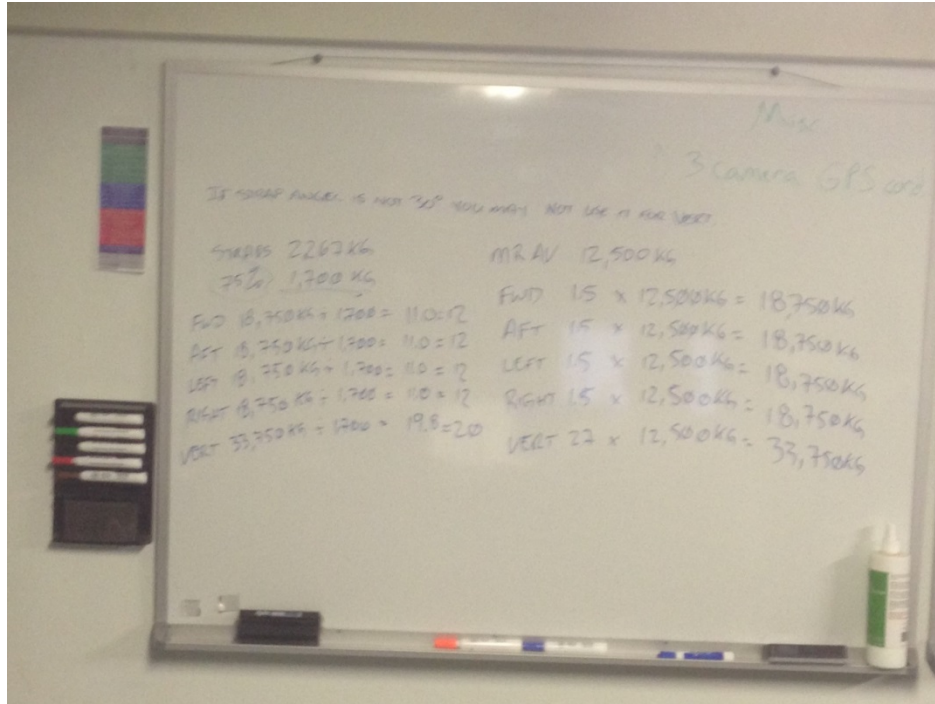 Misc
3 camera GPS cord
IF STRAP ANGEL IS NOT 30° YOU MAY NOT USE IT FOR VERT.
STRAPS 2267KG
75% 1,700 KG
FWD 18,750KG ÷ 1700 = 11.0=12
AFT 18,750KG ÷ 1,700= 11.0=12
LEFT 18,750KG ÷ 1,700= 11.0=12
RIGHT 18,750KG ÷ 1,700 = 11.0=12
VERT 33,750KG ÷ 1700 = 19.8=20
MRAV 12,500KG
FWD 1.5 x 12,500KG= 18,750KG
AFT 1.5 x 12,500KG= 18,750KG
LEFT 1.5 x 12,500KG= 18,750KG
RIGHT 1.5 x 12,500KG= 18,750KG
VERT 2.7 x 12,500KG= 33,750KG